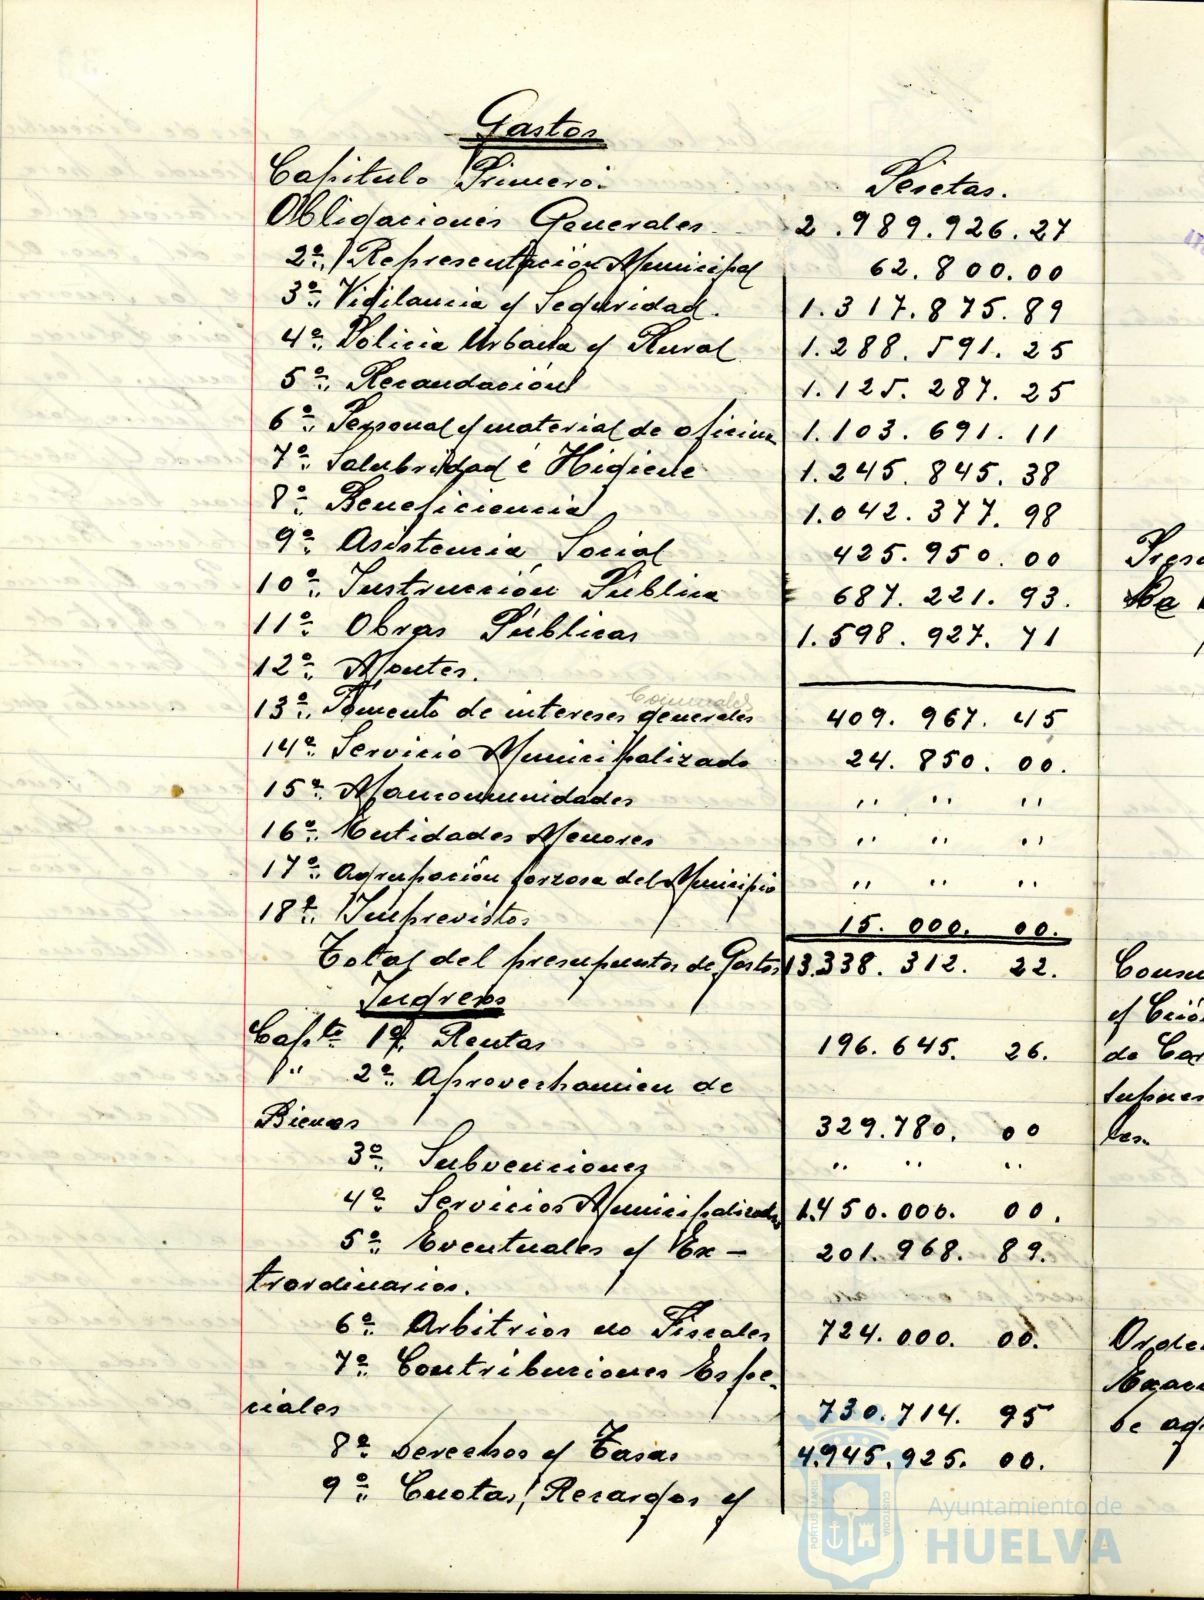 Gastos
Capitulo Primero. Pesetas.
Obligaciones Generales 2.989.926.27
2º Representación Municipal 62.800.00
3º Vigilancia y Seguridad. 1.317.875.89
4º Policia Urbana y Rural 1.288.591.25
5º Recaudación 1.125.287.25
6º Personal y material de oficina 1.103.691.11
7º Salubridad é Higiene 1.245.845.38
8º Beneficiencia 1.042.377.98
9º Asistencia Social 425.950.00
10º Instrucción Pública 687.221.93.
11º Obras Públicas 1.598.927.71
12º Montes.
Comunales
13º Fomento de intereses generales 409.967.45
14º Servicio Municipalizado 24.850.00.
15º Mancomunidades " " "
16º Entidades Menores " " "
17º Agrupación forzosa del Municipio " " "
18º Imprevistos 15.000.00.
Total del presupuestos de Gastos 13.338.312.22.
Ingresos
Capto 1º Rentas 196.645.26.
" 2º Aprovechamien de
Bienes 329.780.00
3º Subvenciones " " "
4º Servicios Municipalizados 1.450.000.00.
5º Eventuales y Ex-
traordinarios. 201.968.89.
6º Arbitrios no Fiscales 724.000.00.
7º Contribuciones Espe-
ciales 730.714.95
8º Derechos y Tasas 4.945.925.00.
9º Cuotas, Recargos y
de
y
de
les.
Ayuntamiento de
HUELVA
PORTUS MARIS
CUSTODIA